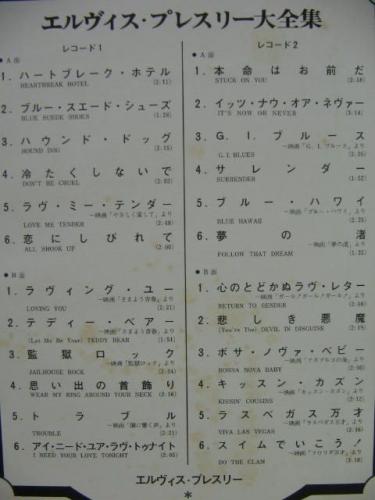 エルヴィス・プレスリー大全集
レコード1
●A面
1. ハートブレーク・ホテル
HEARTBREAK HOTEL (2:11)
2. ブルー・スエード・シューズ
BLUE SUEDE SHOES
3. ハウンド・ドッグ
HOUND DOG (2:15)
4. 冷たくしないで
DON'T BE CRUEL (2:02)
5. ラヴ・ミー・テンダー
―映画「やさしく愛して」より
LOVE ME TENDER
6. 恋にしびれて
ALL SHOOK UP
●B面
1. ラヴィング・ユー
―映画「さまよう青春」より
LOVING YOU (2:21)
2. テディー・ベアー
―映画「さまよう青春」より
(Let Me Be Your) TEDDY BEAR
3. 監獄ロック
―映画「監獄ロック」より
JAILHOUSE ROCK
4. 思い出の首飾り
WEAR MY RING AROUND YOUR NECK
5. トラブル
―映画「闇に響く声」より
TROUBLE
6. アイ・ニード・ユア・ラヴ・トゥナイト
I NEED YOUR LOVE TONIGHT
レコード2
●A面
1. 本命はお前だ
STUCK ON YOU
2. イッツ・ナウ・オア・ネヴァー
IT'S NOW OR NEVER
3. G.I.ブルース
―映画「G.I.ブルース」より
G.I. BLUES
4. サレンダー
SURRENDER
5. ブルー・ハワイ
―映画「ブルー・ハワイ」より
BLUE HAWAII
6. 夢の渚
―映画「夢の渚」より
FOLLOW THAT DREAM
●B面
1. 心のとどかぬラヴ・レター
―映画「ガール！ガール！ガール！」より
RETURN TO SENDER
2. 悲しき悪魔
(You're The) DEVIL IN DISGUISE
3. ボサ・ノヴァ・ベビー
―映画「アカプルコの海」より
BOSSA NOVA BABY
4. キッスン・カズン
―映画「キッスン・カズン」より
KISSIN' COUSINS
5. ラスベガス万才
―映画「ラスベガス万才」より
VIVA LAS VEGAS
6. スイムでいこう！
―映画「フロリダ万才」より
DO THE CLAM
エルヴィス・プレスリー